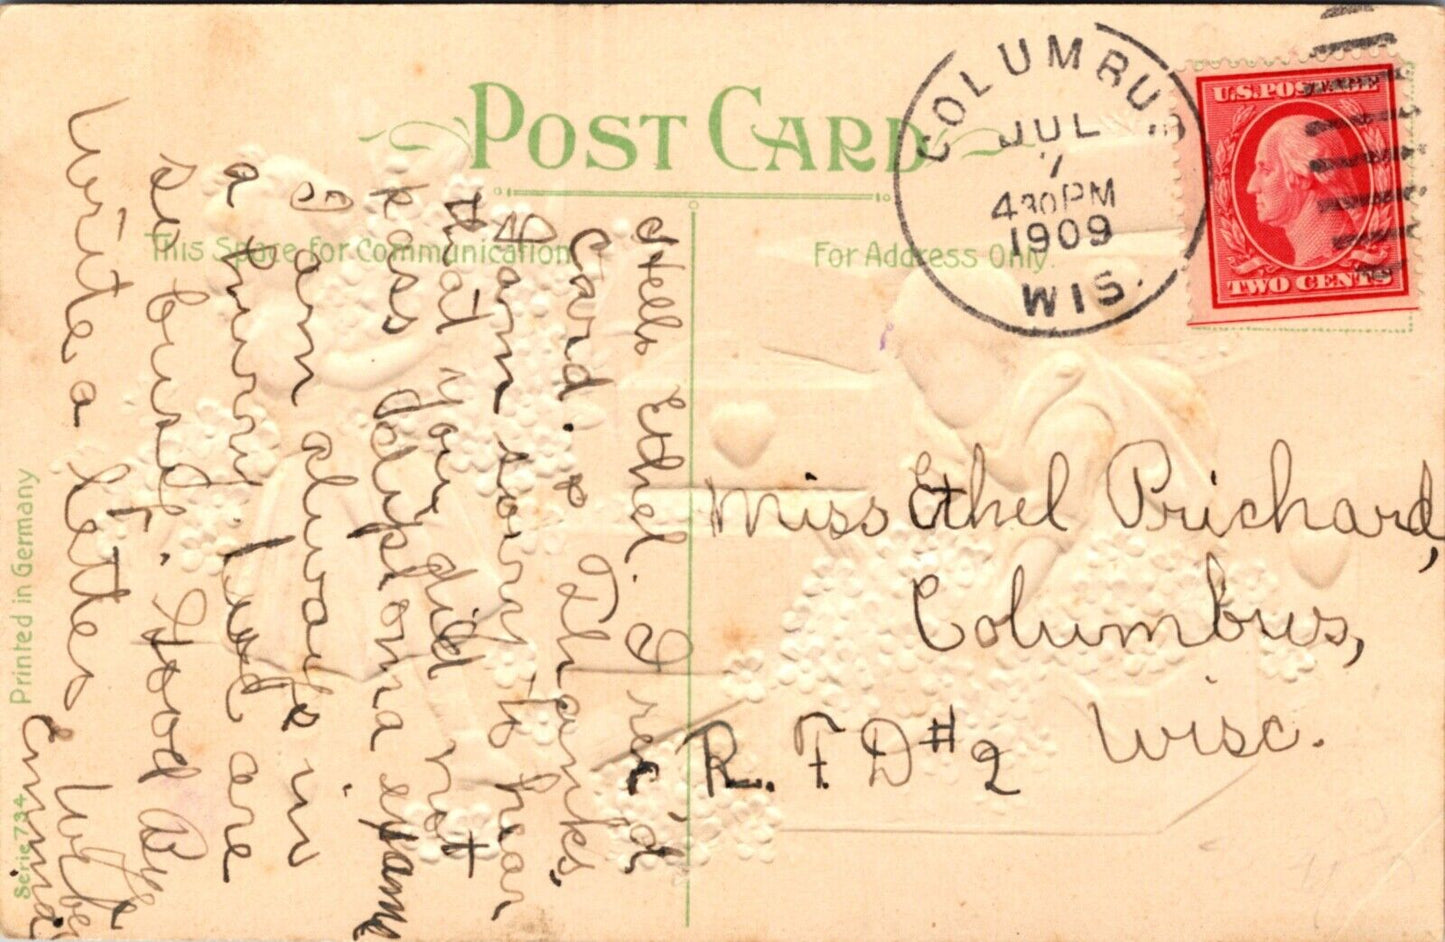 POST CARD
This Space for Communication
For Address Only.
COLUMBUS
JUL
7
430PM
1909
WIS.
U.S. POSTAGE
TWO CENTS
Miss Ethel Prichard,
Columbus,
Wisc.
R. F. D #2
Hello Ethel. I rec'd
Card. Thanks,
I am sorry to hear
that you did not
pass diploma exam
I am always in
a hurry. but are
so busy. Good Bye
Write a letter
Emma
Printed in Germany
Serie 734